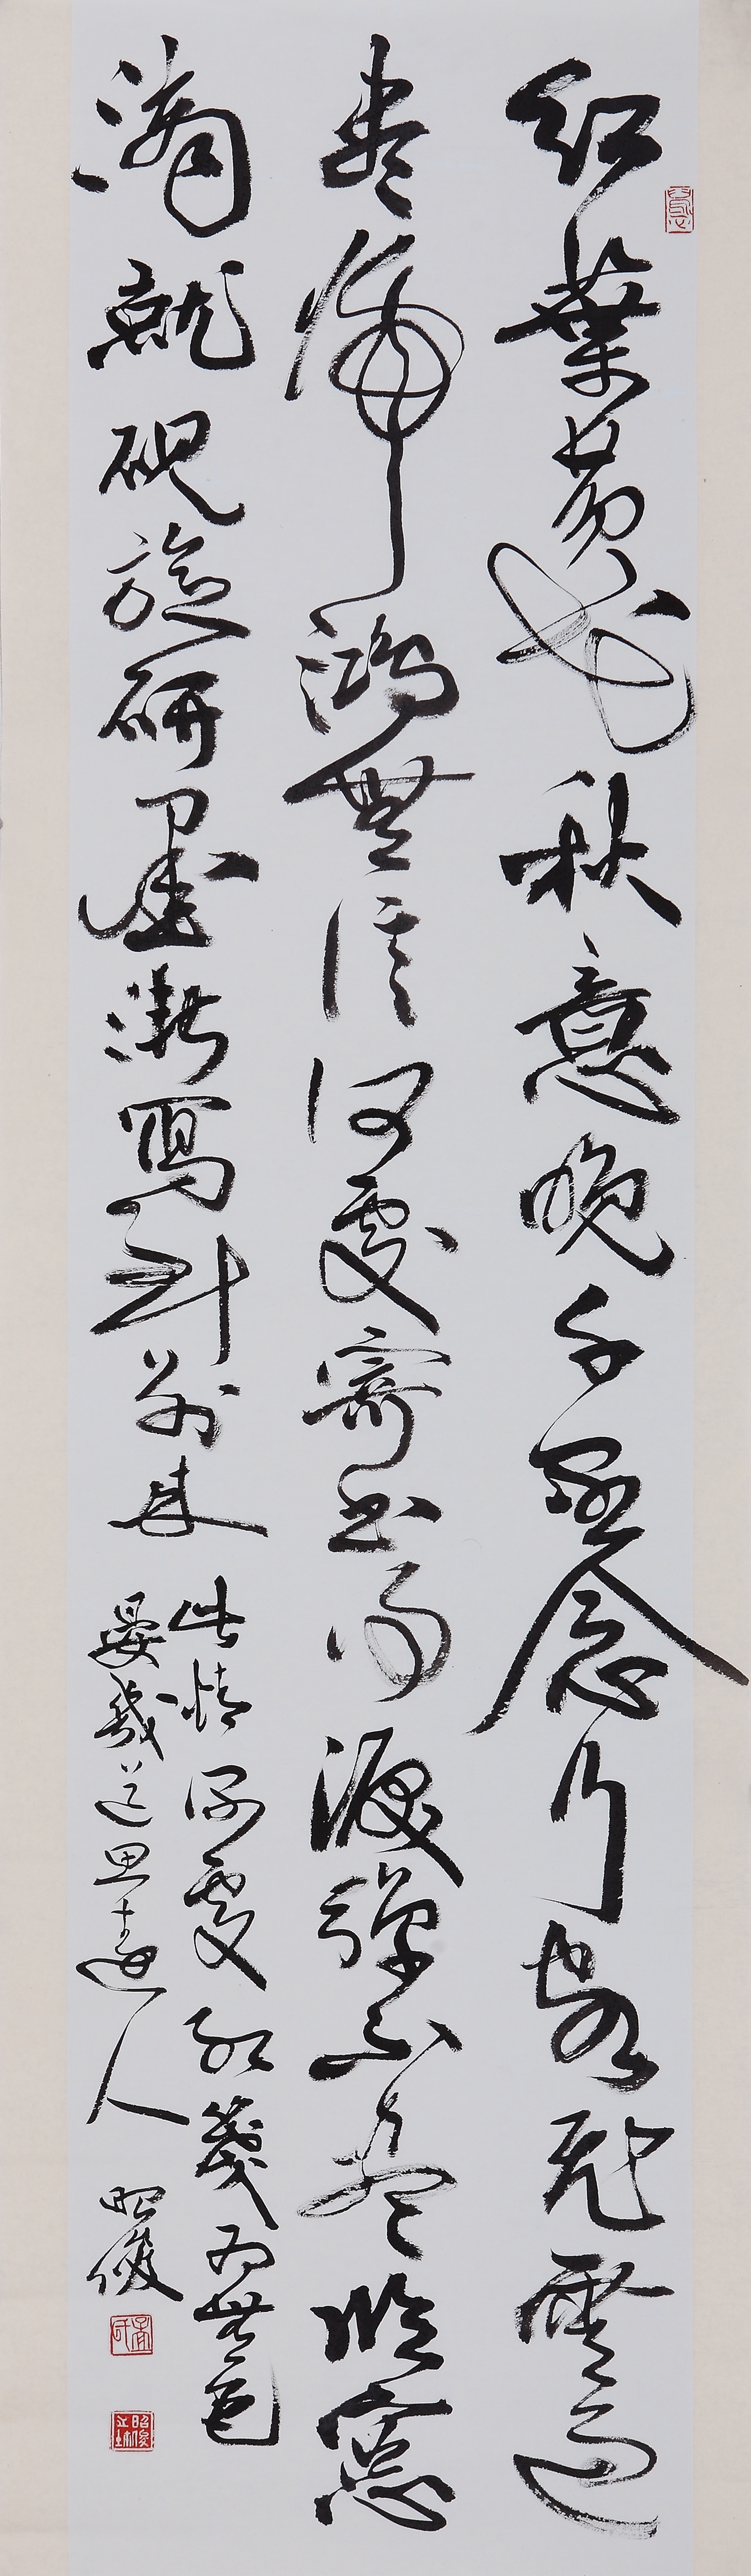 紅葉黃花秋意晚千里念行客飛雲過
盡歸鴻無信何處寄書得淚彈不盡臨窓
滴就硯旋研墨漸寫到別來
此情深處紅箋為無色
晏幾道思遠人 昭俊